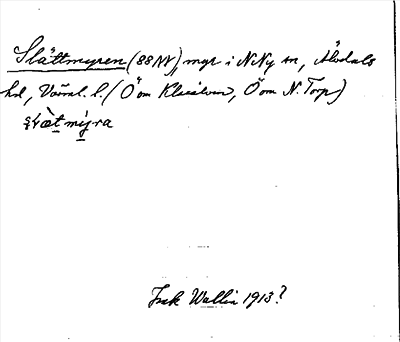 Slättmyren (88NV), myr i N Ny sn, Älvdals
hd, Värml. l. (Ö om Klarälven, Ö om N. Torp)
mýra
Wallin 1913?